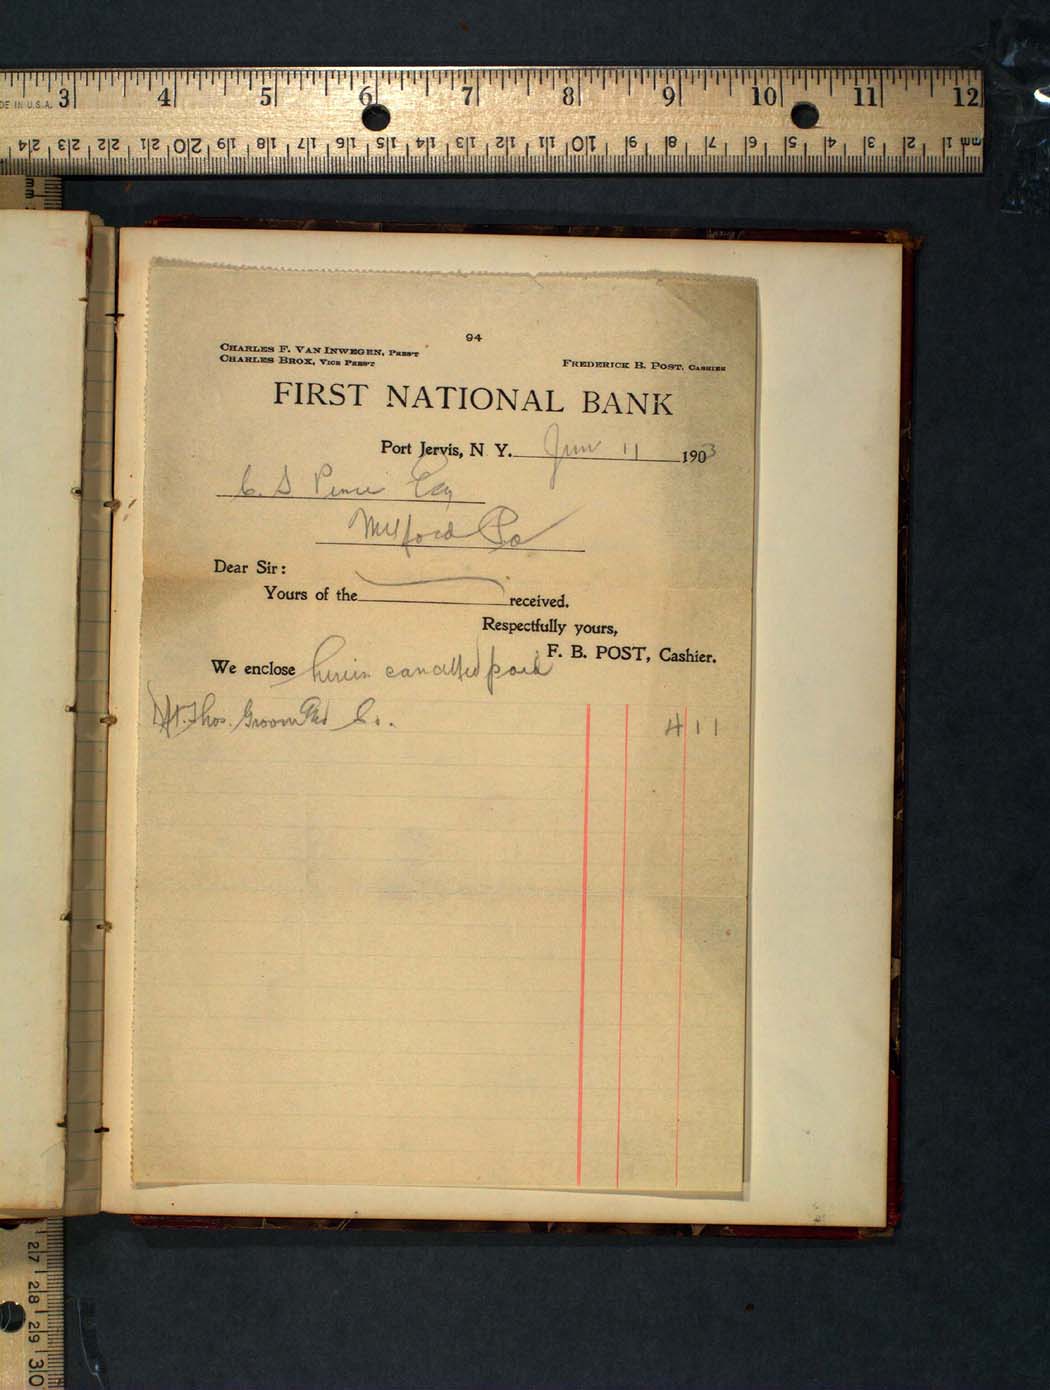 DE IN U.S.A. 3 4 5 6 7 8 9 10 11 12
24 23 22 21 20 19 18 17 16 15 14 13 12 11 10 9 8 7 6 5 4 3 2 1 mm
mm
94
CHARLES F. VAN INWEGEN, PRES'T
CHARLES BROX, VICE PRES'T
FREDERICK B. POST, CASHIER
FIRST NATIONAL BANK
Port Jervis, N. Y. Jun 11 1903
C. S. Peirce Esq
Milford Pa
Dear Sir:
Yours of the received.
Respectfully yours,
F. B. POST, Cashier.
We enclose herein cancelled paid
Nt. Thos. Groom & Co. 4 11
27 28 29 30